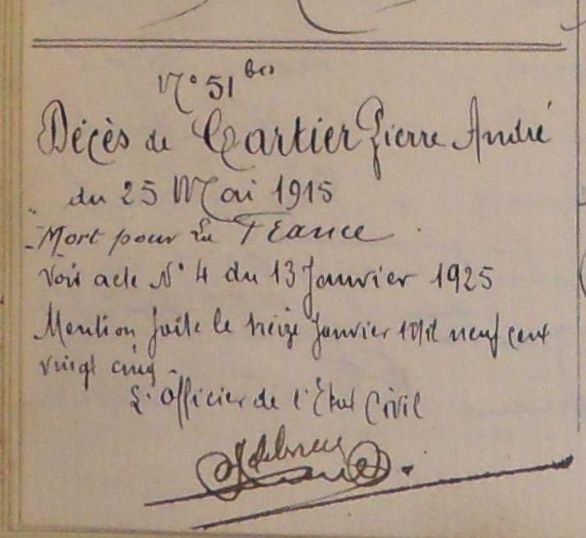 N° 51 bis
Décès de Cartier Pierre André
du 25 Mai 1915
"Mort pour la France"
Voir acte N° 4 du 13 Janvier 1925
Mention faite le treize Janvier Mil neuf cent
vingt cinq.
L'Officier de l'Etat Civil